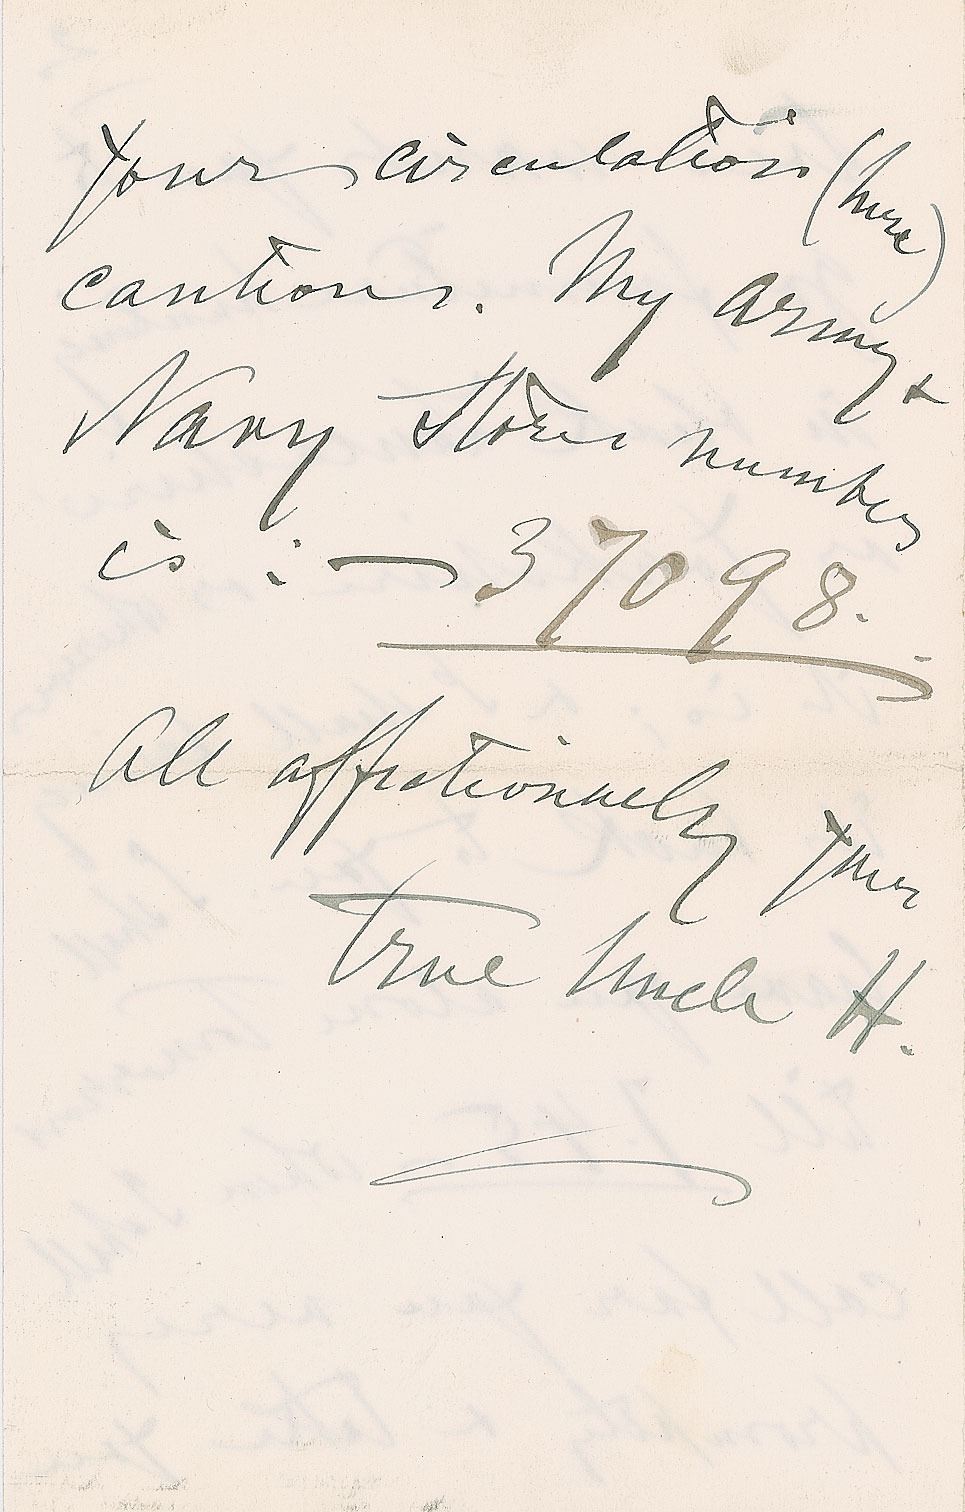 your circulation (here)
cautious. My Army &
Navy Stores number
is : — 37098.
All affectionately your
true Uncle H.